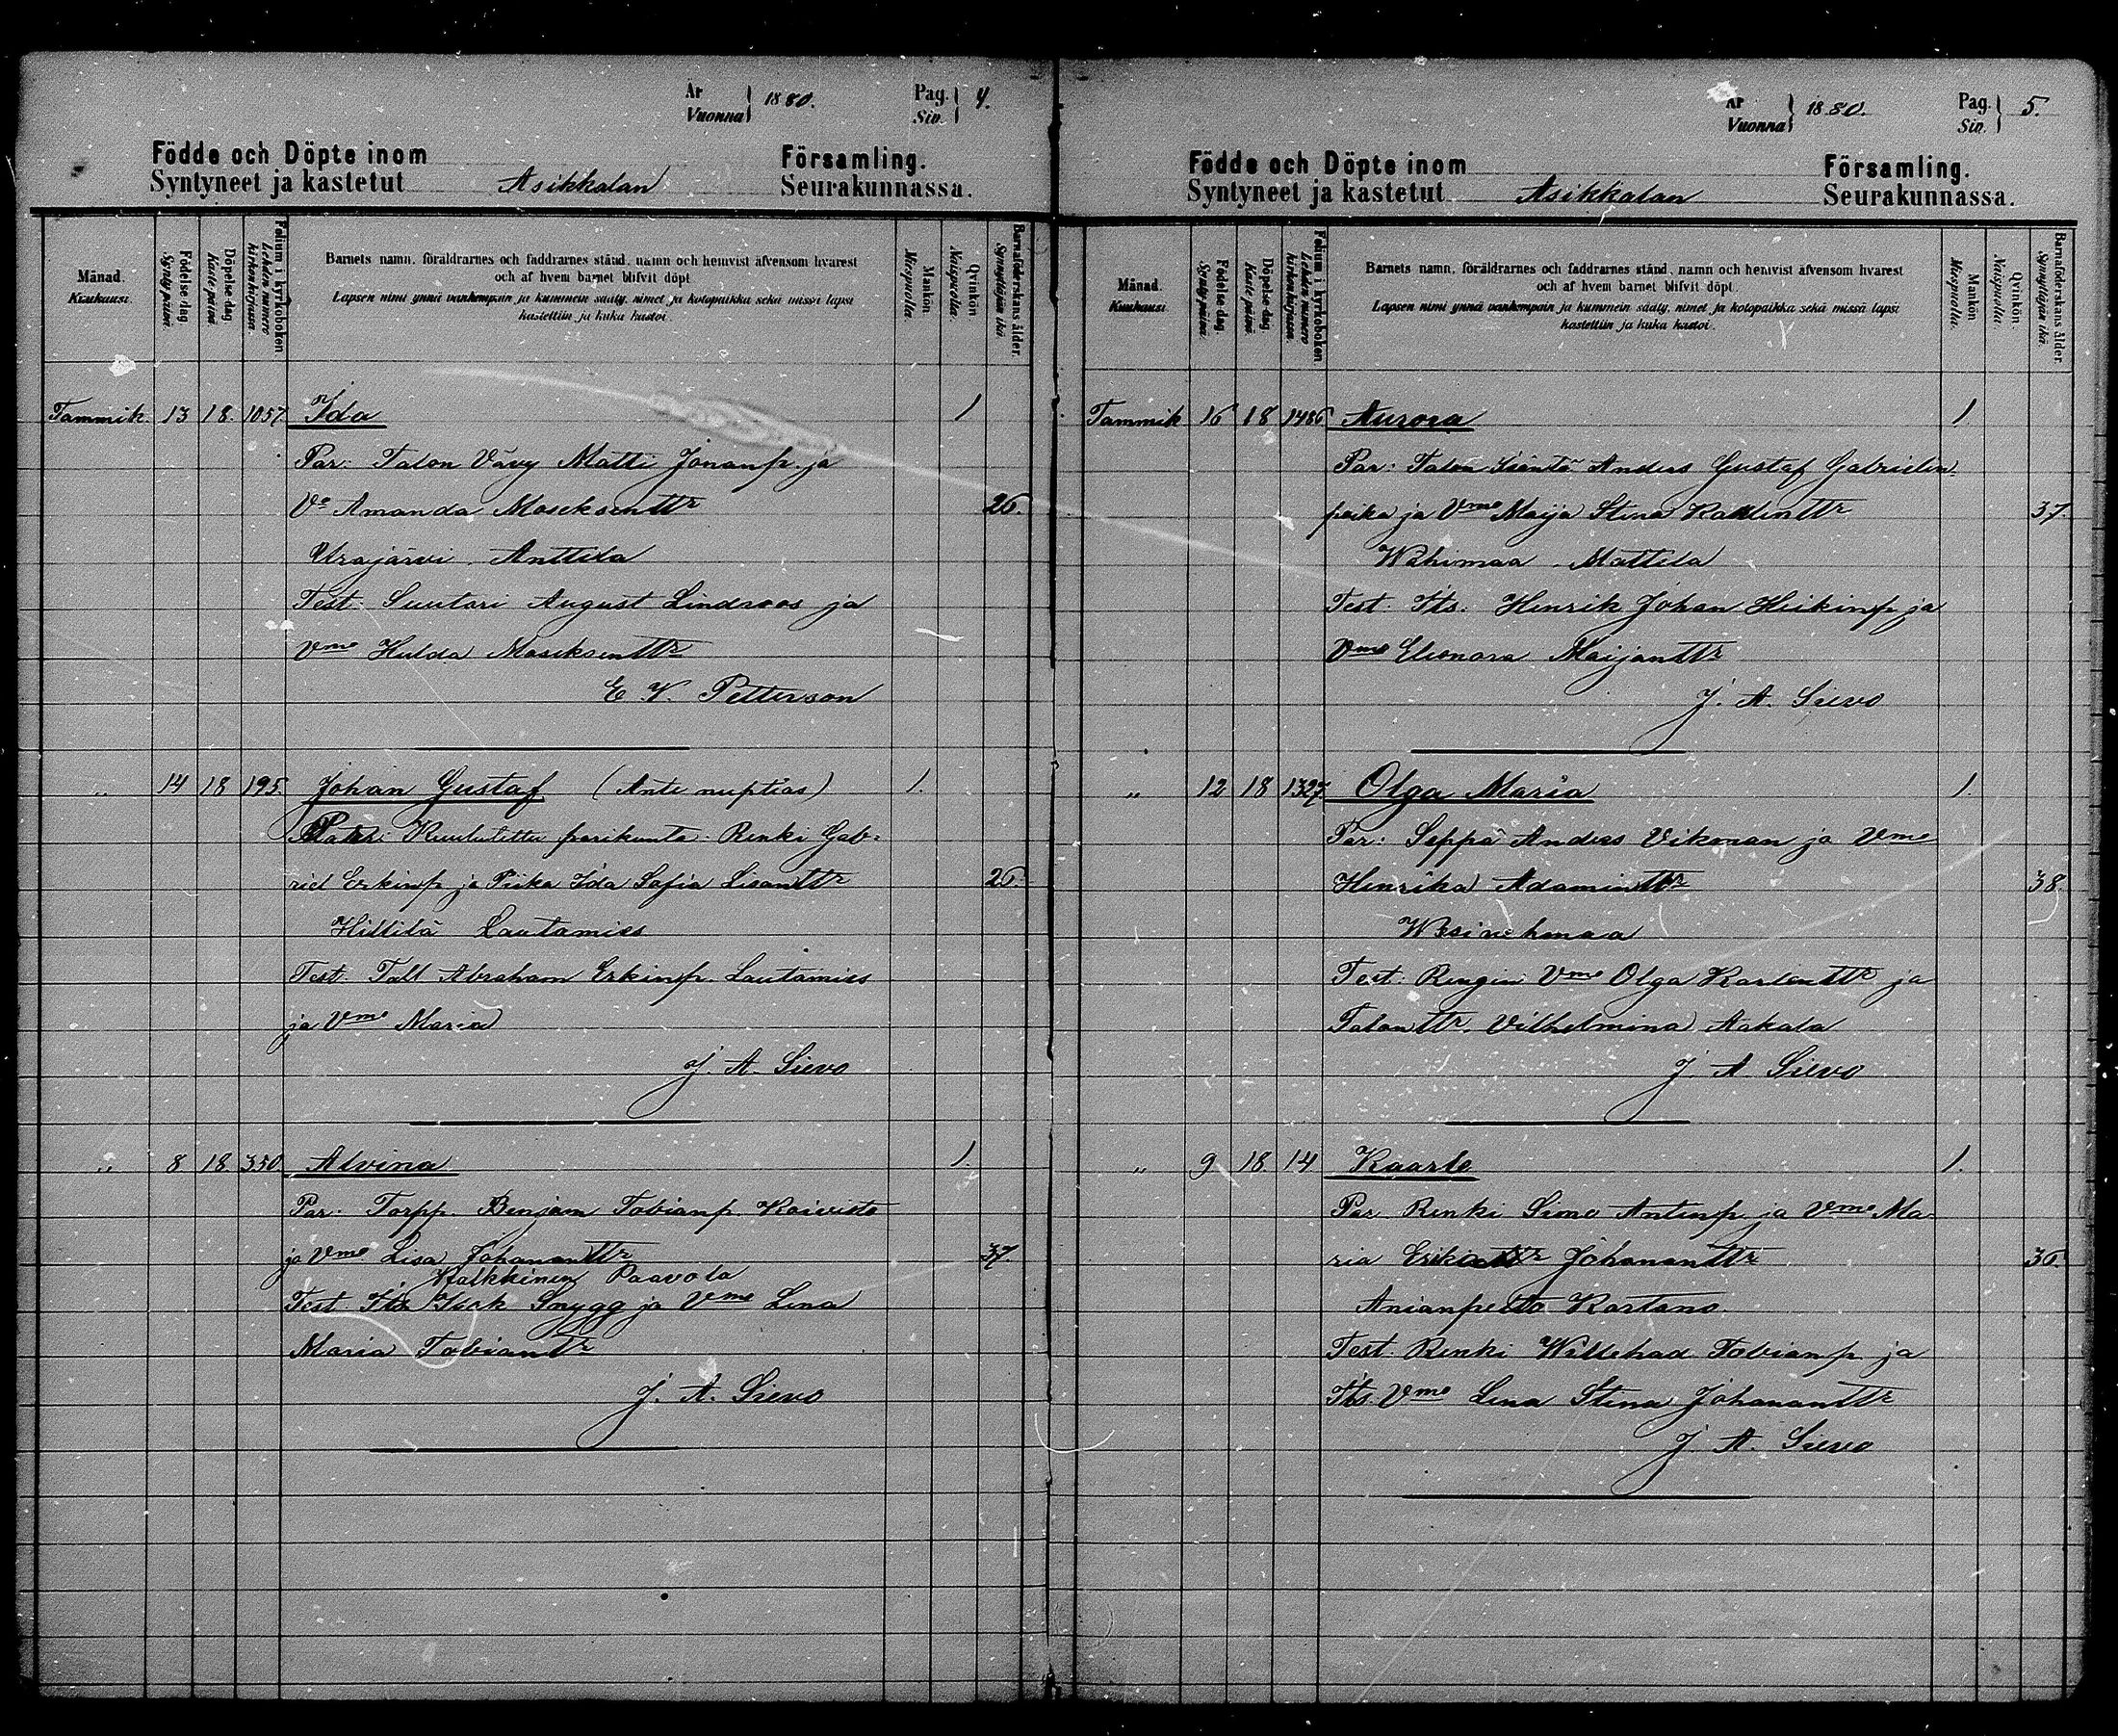 År
Vuonna 1880. Pag. Siv. 4.
Födde och Döpte inom Församling.
Syntyneet ja kastetut Asikkalan Seurakunnassa.
Månad. Kuukausi.
Födelse dag Synty päivä
Döpelse dag Kaste päivä
Folium i kyrkoboken Lehden numero kirkonkirjassa.
Barnets namn, föräldrarnes och faddrarnes stånd, namn och hemvist äfvensom hvarest
och af hvem barnet blifvit döpt
Lapsen nimi ynnä vanhempain ja kummein sääty, nimet ja kotopaikka sekä missä lapsi
kastettiin ja kuka kastoi.
Mankön Miespuolia.
Qvinkön Naispuolia.
Barnaföderskans ålder. Synnyttäjän ikä.
Tammik. 13 18. 1057. Ida 1
Par: Talon Vävy Matti Jonanp. ja
Vo Amanda Moseksenttr 26.
Urajärvi. Anttila
Test: Suutari August Lindroos ja
Vmo Hulda Moseksenttr
E V. Petterson
" 14 18 195. Johan Gustaf (Ante nuptias) 1.
Kuulutettu parikunta: Renki Gab=
riel Erkinp ja Piika Ida Sofia Lisanttr 26.
Hillilä Lautamies
Test: Tall Abraham Erkinp. Lautamies
ja Vmo Maria
J A. Sievo
" 8 18 350 Alvina 1.
Par: Torpp. Benjam Tobianp. Koivisto
ja Vmo Lisa Johananttr 37.
Kalkkinen Paavola
Test Its Isak Snygg ja Vmo Lena
Maria Tobianttr
J. A. Sievo
År
Vuonna 1880. Pag. Siv. 5.
Födde och Döpte inom Församling.
Syntyneet ja kastetut Asikkalan Seurakunnassa.
Månad. Kuukausi.
Födelse dag. Synty päivä.
Döpelse dag Kaste päivä.
Folium i kyrkoboken. Lehden numero kirkonkirjassa.
Barnets namn, föräldrarnes och faddrarnes stånd, namn och hemvist äfvensom hvarest
och af hvem barnet blifvit döpt.
Lapsen nimi ynnä vanhempain ja kummein sääty, nimet ja kotopaikka sekä missä lapsi
kastettiin ja kuka kastoi.
Mankön Miespuolia.
Qvinkön. Naispuolia.
Barnaföderskans ålder. Synnyttäjän ikä.
Tammik 16 18 1486 Aurora 1.
Par: Talon Isäntä Anders Gustaf Gabrielin
poika ja Vmo Maija Stina Kallenttr 37.
Wähimaa. Mattila
Test: Its. Henrik Johan Heikinp ja
Vmo Eleonora Maijanttr
J. A. Sievo
" 12 18 1327 Olga Maria 1.
Par: Seppä Anders Vikman ja Vmo
Henrika Adaminttr 38.
Wesivehmaa
Test: Rengin Vmo Olga Karlenttr ja
Talonttr. Vilhelmina Aakala
J. A Sievo
" 9 18. 14 Kaarle 1.
Par Renki Simo Antinp ja Vmo Ma=
ria Johananttr 36.
Anianpelto Kartano.
Test. Renki Willehad Tobianp ja
Its. Vmo Lena Stina Johananttr
J A. Sievo